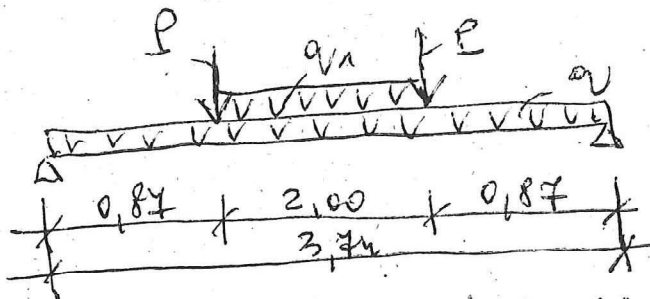 P P
q1
q
0,87 2,00 0,87
3,74